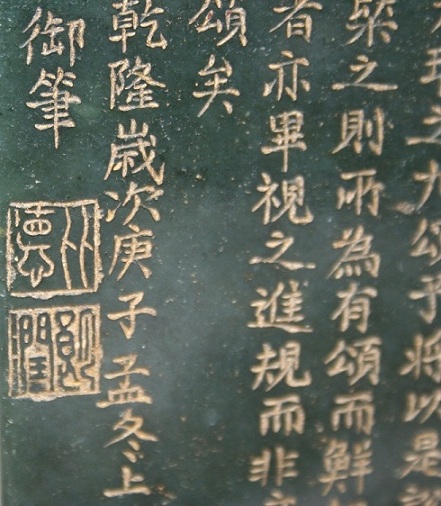 之九頌予將以是
之則所為有頌而鮮
者亦畢視之進規而非
頌矣
乾隆歲次庚子孟冬上
御筆
比德
朗潤